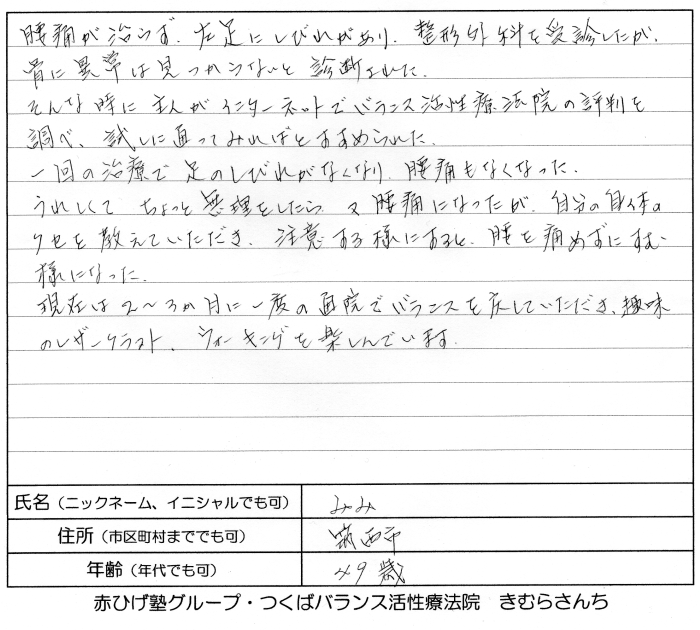 腰痛が治らず、左足にしびれがあり、整形外科を受診したが、
骨に異常は見つからないと診断された。
そんな時に主人がインターネットでバランス活性療法院の評判を
調べ、試しに通ってみればとすすめられた。
一回の治療で足のしびれがなくなり、腰痛もなくなった。
うれしくてちょっと無理をしたら又腰痛になったが、自分の身体の
クセを教えていただき、注意する様にすると、腰を痛めずにすむ
様になった。
現在は2〜3か月に一度の通院でバランスを戻していただき、趣味
のレザークラフト、ウォーキングを楽しんでいます。
氏名(ニックネーム、イニシャルでも可) みみ
住所(市区町村まででも可) 筑西市
年齢(年代でも可) 49歳
赤ひげ塾グループ・つくばバランス活性療法院 きむらさんち